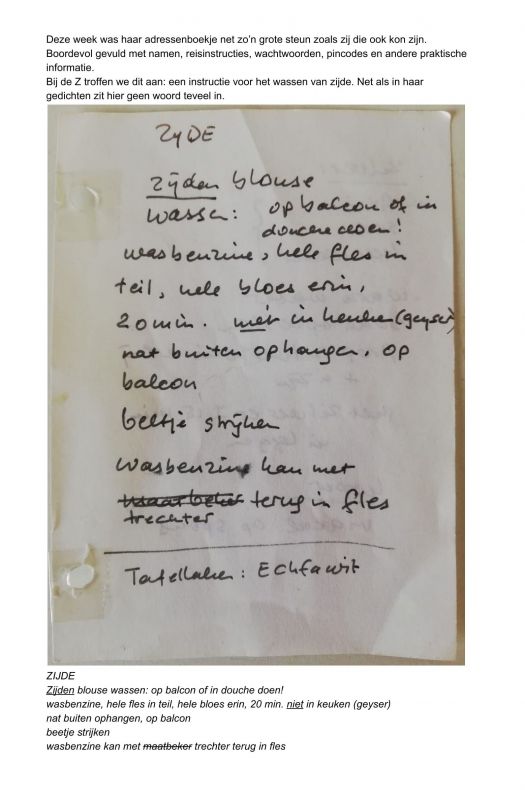 Deze week was haar adressenboekje net zo’n grote steun zoals zij die ook kon zijn.
Boordevol gevuld met namen, reisinstructies, wachtwoorden, pincodes en andere praktische
informatie.
Bij de Z troffen we dit aan: een instructie voor het wassen van zijde. Net als in haar
gedichten zit hier geen woord teveel in.
ZYDE
zijden blouse
wassen: op balcon of in
douche doen!
wasbenzine, hele fles in
teil, hele bloes erin,
20 min. niet in keuken (geyser)
nat buiten ophangen, op
balcon
beetje strijken
wasbenzine kan met
maatbeker terug in fles
trechter
Tafellaken: Echfawit
ZIJDE
Zijden blouse wassen: op balcon of in douche doen!
wasbenzine, hele fles in teil, hele bloes erin, 20 min. niet in keuken (geyser)
nat buiten ophangen, op balcon
beetje strijken
wasbenzine kan met maatbeker trechter terug in fles